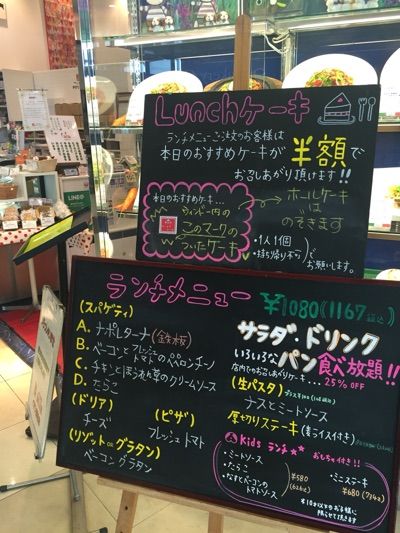 Lunchケーキ
ランチメニューご注文のお客様は
本日のおすすめケーキが 半額で
お召しあがり頂けます!!
本日のおすすめケーキ...
ウィンドー内の
このマークの
ついたケーキ
ホールケーキ
は
のぞきます
・1人1個
・持ち帰り不可
でお願いします。
ランチメニュー ¥1080(1167税込)
(スパゲティ)
A. ナポレターナ(鉄板)
B. ベーコンとフレッシュトマトのペペロンチーノ
C. チキンとほうれん草のクリームソース
D. たらこ
(ドリア)
チーズ
(ピザ)
フレッシュトマト
(リゾットorグラタン)
ベーコングラタン
サラダ・ドリンク
いろいろなパン食べ放題!!
店内でのお召しあがりケーキ... 25% OFF
(生パスタ)
ナスとミートソース
厚切りステーキ(麦ライス付き)
Kids ランチ★★ おもちゃ付き!!
・ミートソース
・たらこ
・なすとベーコンのトマトソース
¥580
(626込)
・ミニステーキ
¥680(734込)
LINE@